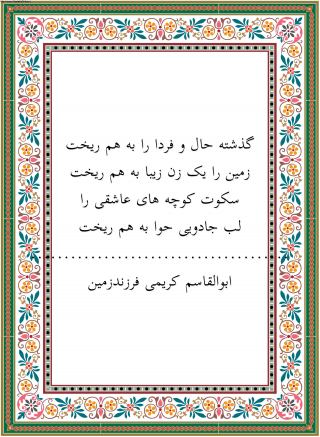 گذشته حال و فردا را به هم ریخت
زمین را یک زن زیبا به هم ریخت
سکوت کوچه های عاشقی را
لب جادویی حوا به هم ریخت
ابوالقاسم کریمی فرزندزمین